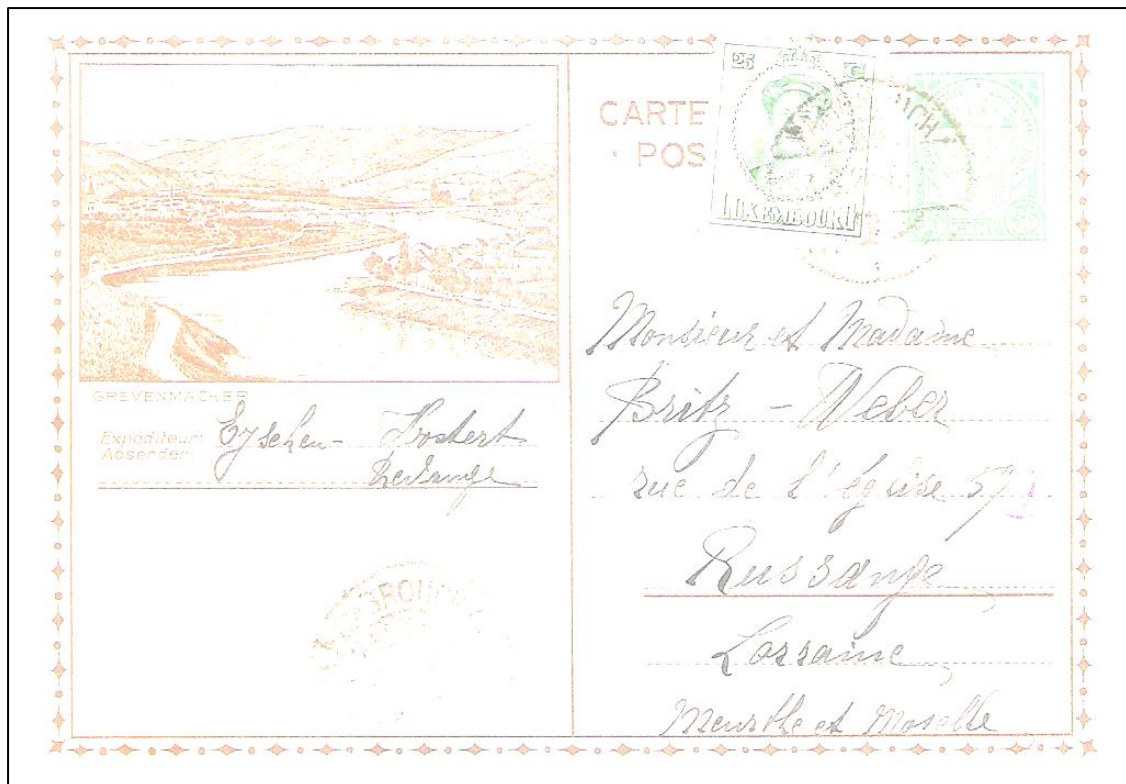 25 C
LUXEMBOURG
CARTE
POS
GREVENMACHER
Expéditeur:
Absender:
Eyschen - Hostert
Monsieur et Madame
Britz - Weber
rue de l'église 57
Russange
Lorraine
Meurthe et Moselle